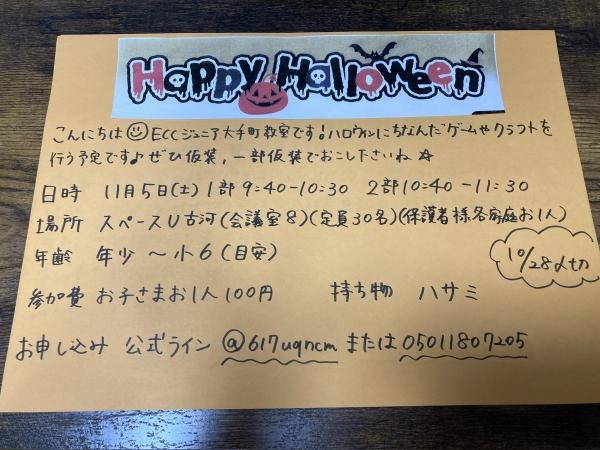 Happy Halloween
こんにちは☺ECCジュニア大手町教室です!ハロウィンにちなんだゲームやクラフトを
行う予定です♪ぜひ仮装,一部仮装でおこしくださいね☆
日時 11月5日(土)1部9:40-10:30 2部10:40-11:30
場所 スペースU古河(会議室8)(定員30名)(保護者様各家庭お1人)
年齢 年少~小6(目安)
10/28〆切
参加費 お子さまお1人100円 持ち物 ハサミ
お申し込み 公式ライン @617uqncm または05011807205